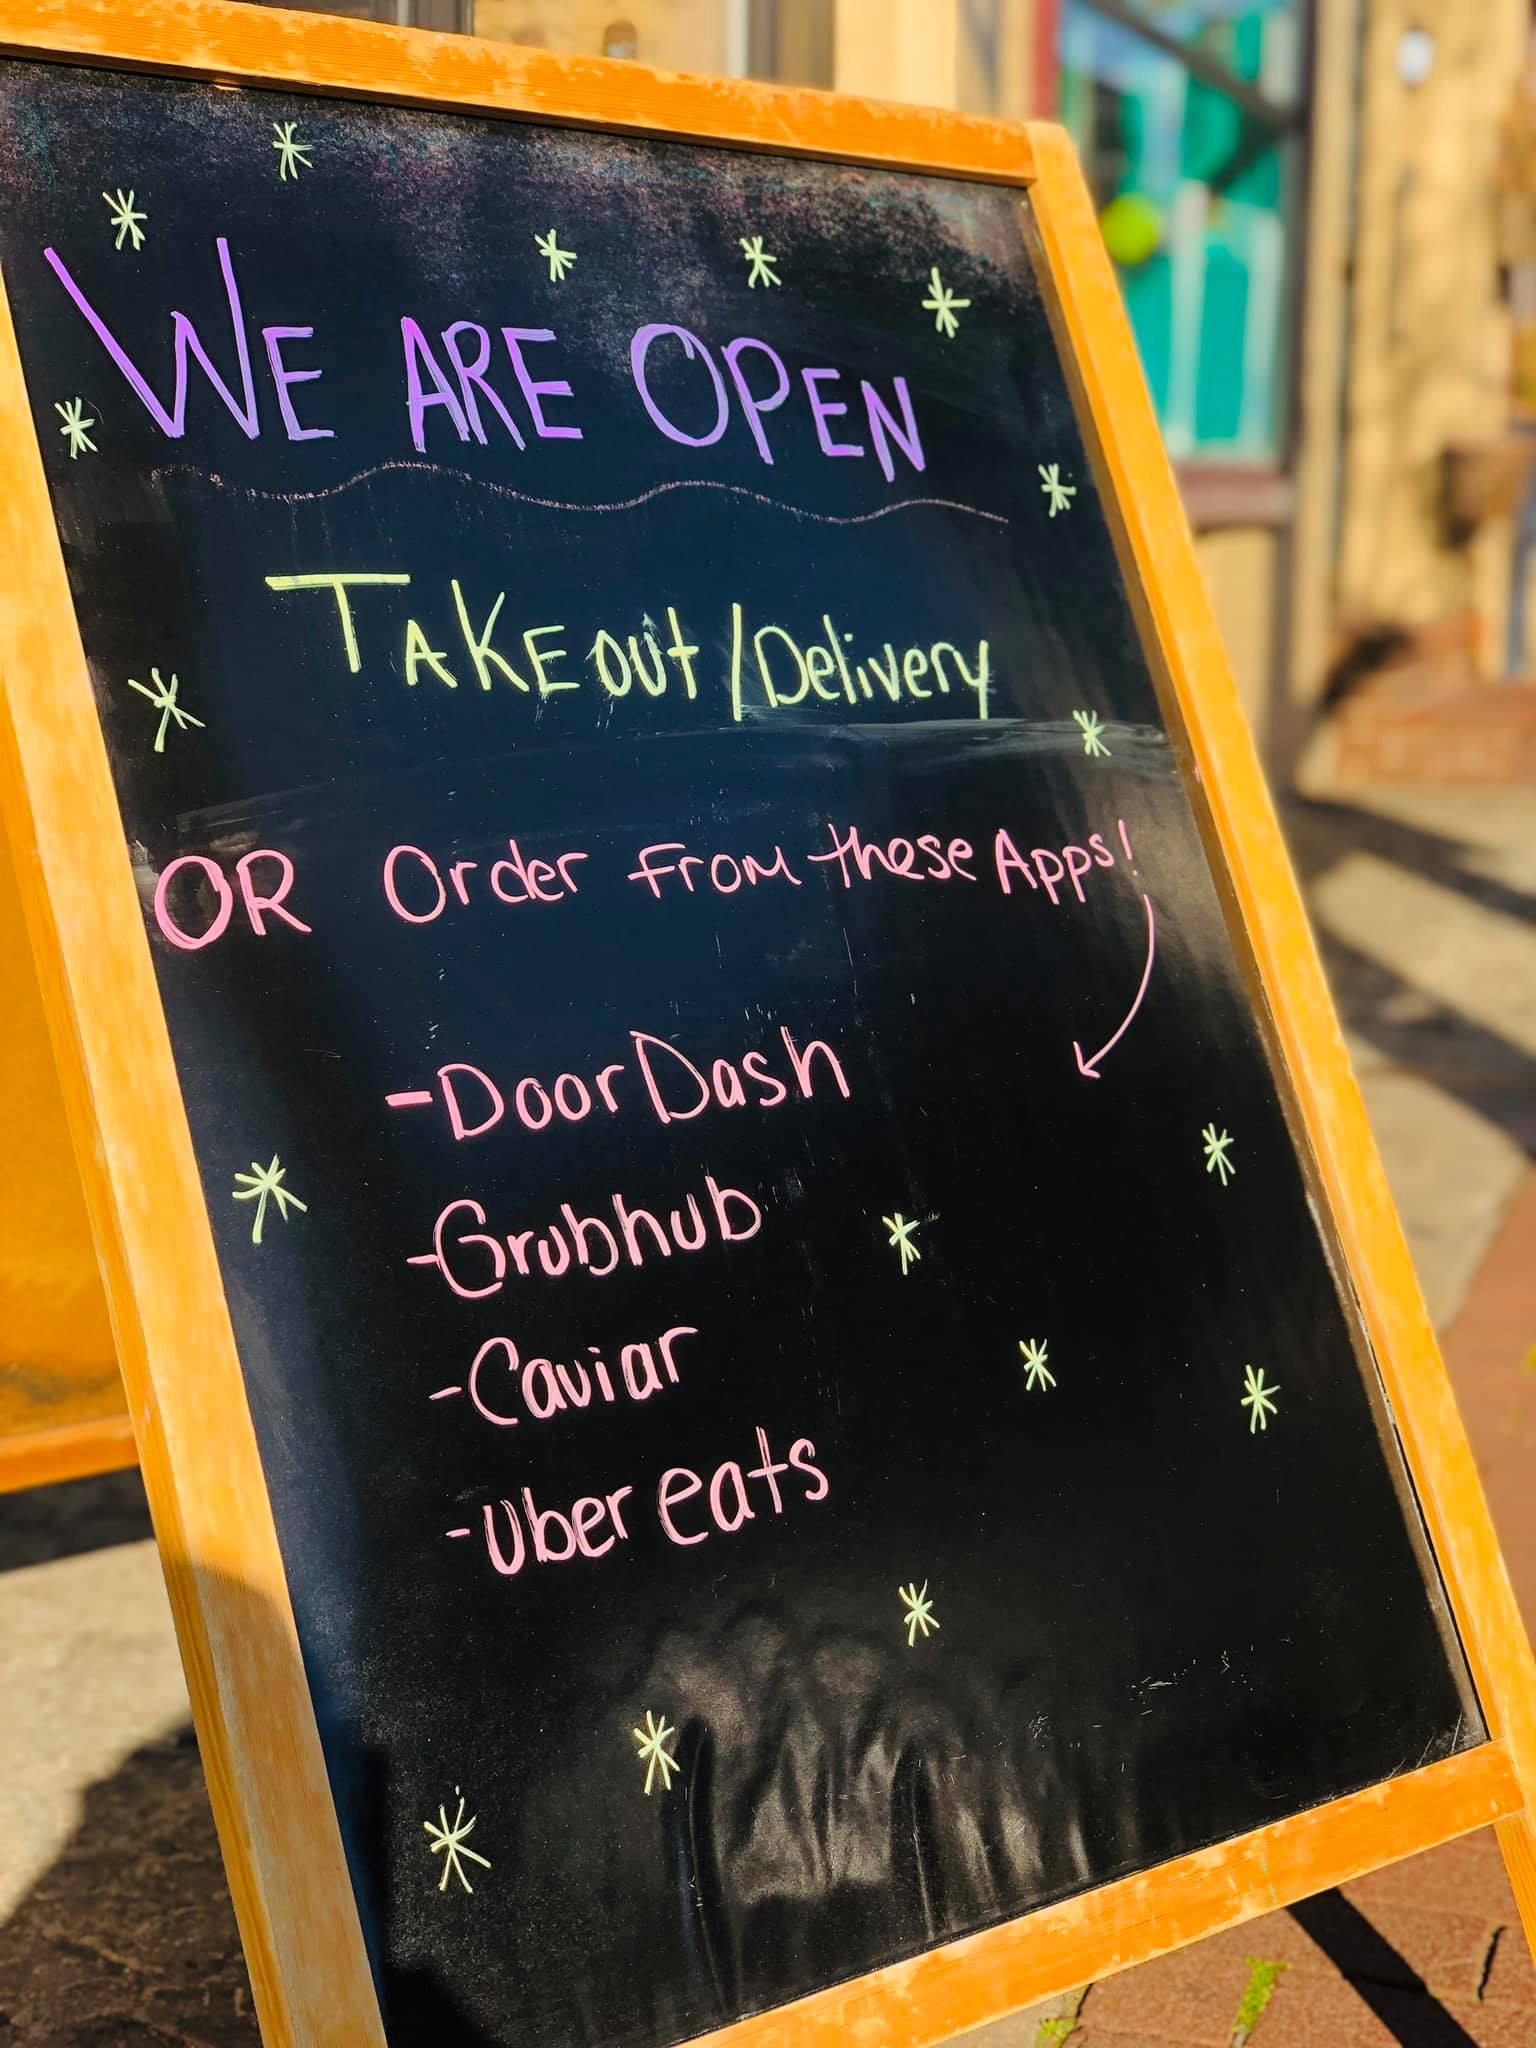 WE ARE OPEN
TAKEOUT/Delivery
OR Order From these Apps!
-DoorDash
-Grubhub
-Caviar
-Uber eats